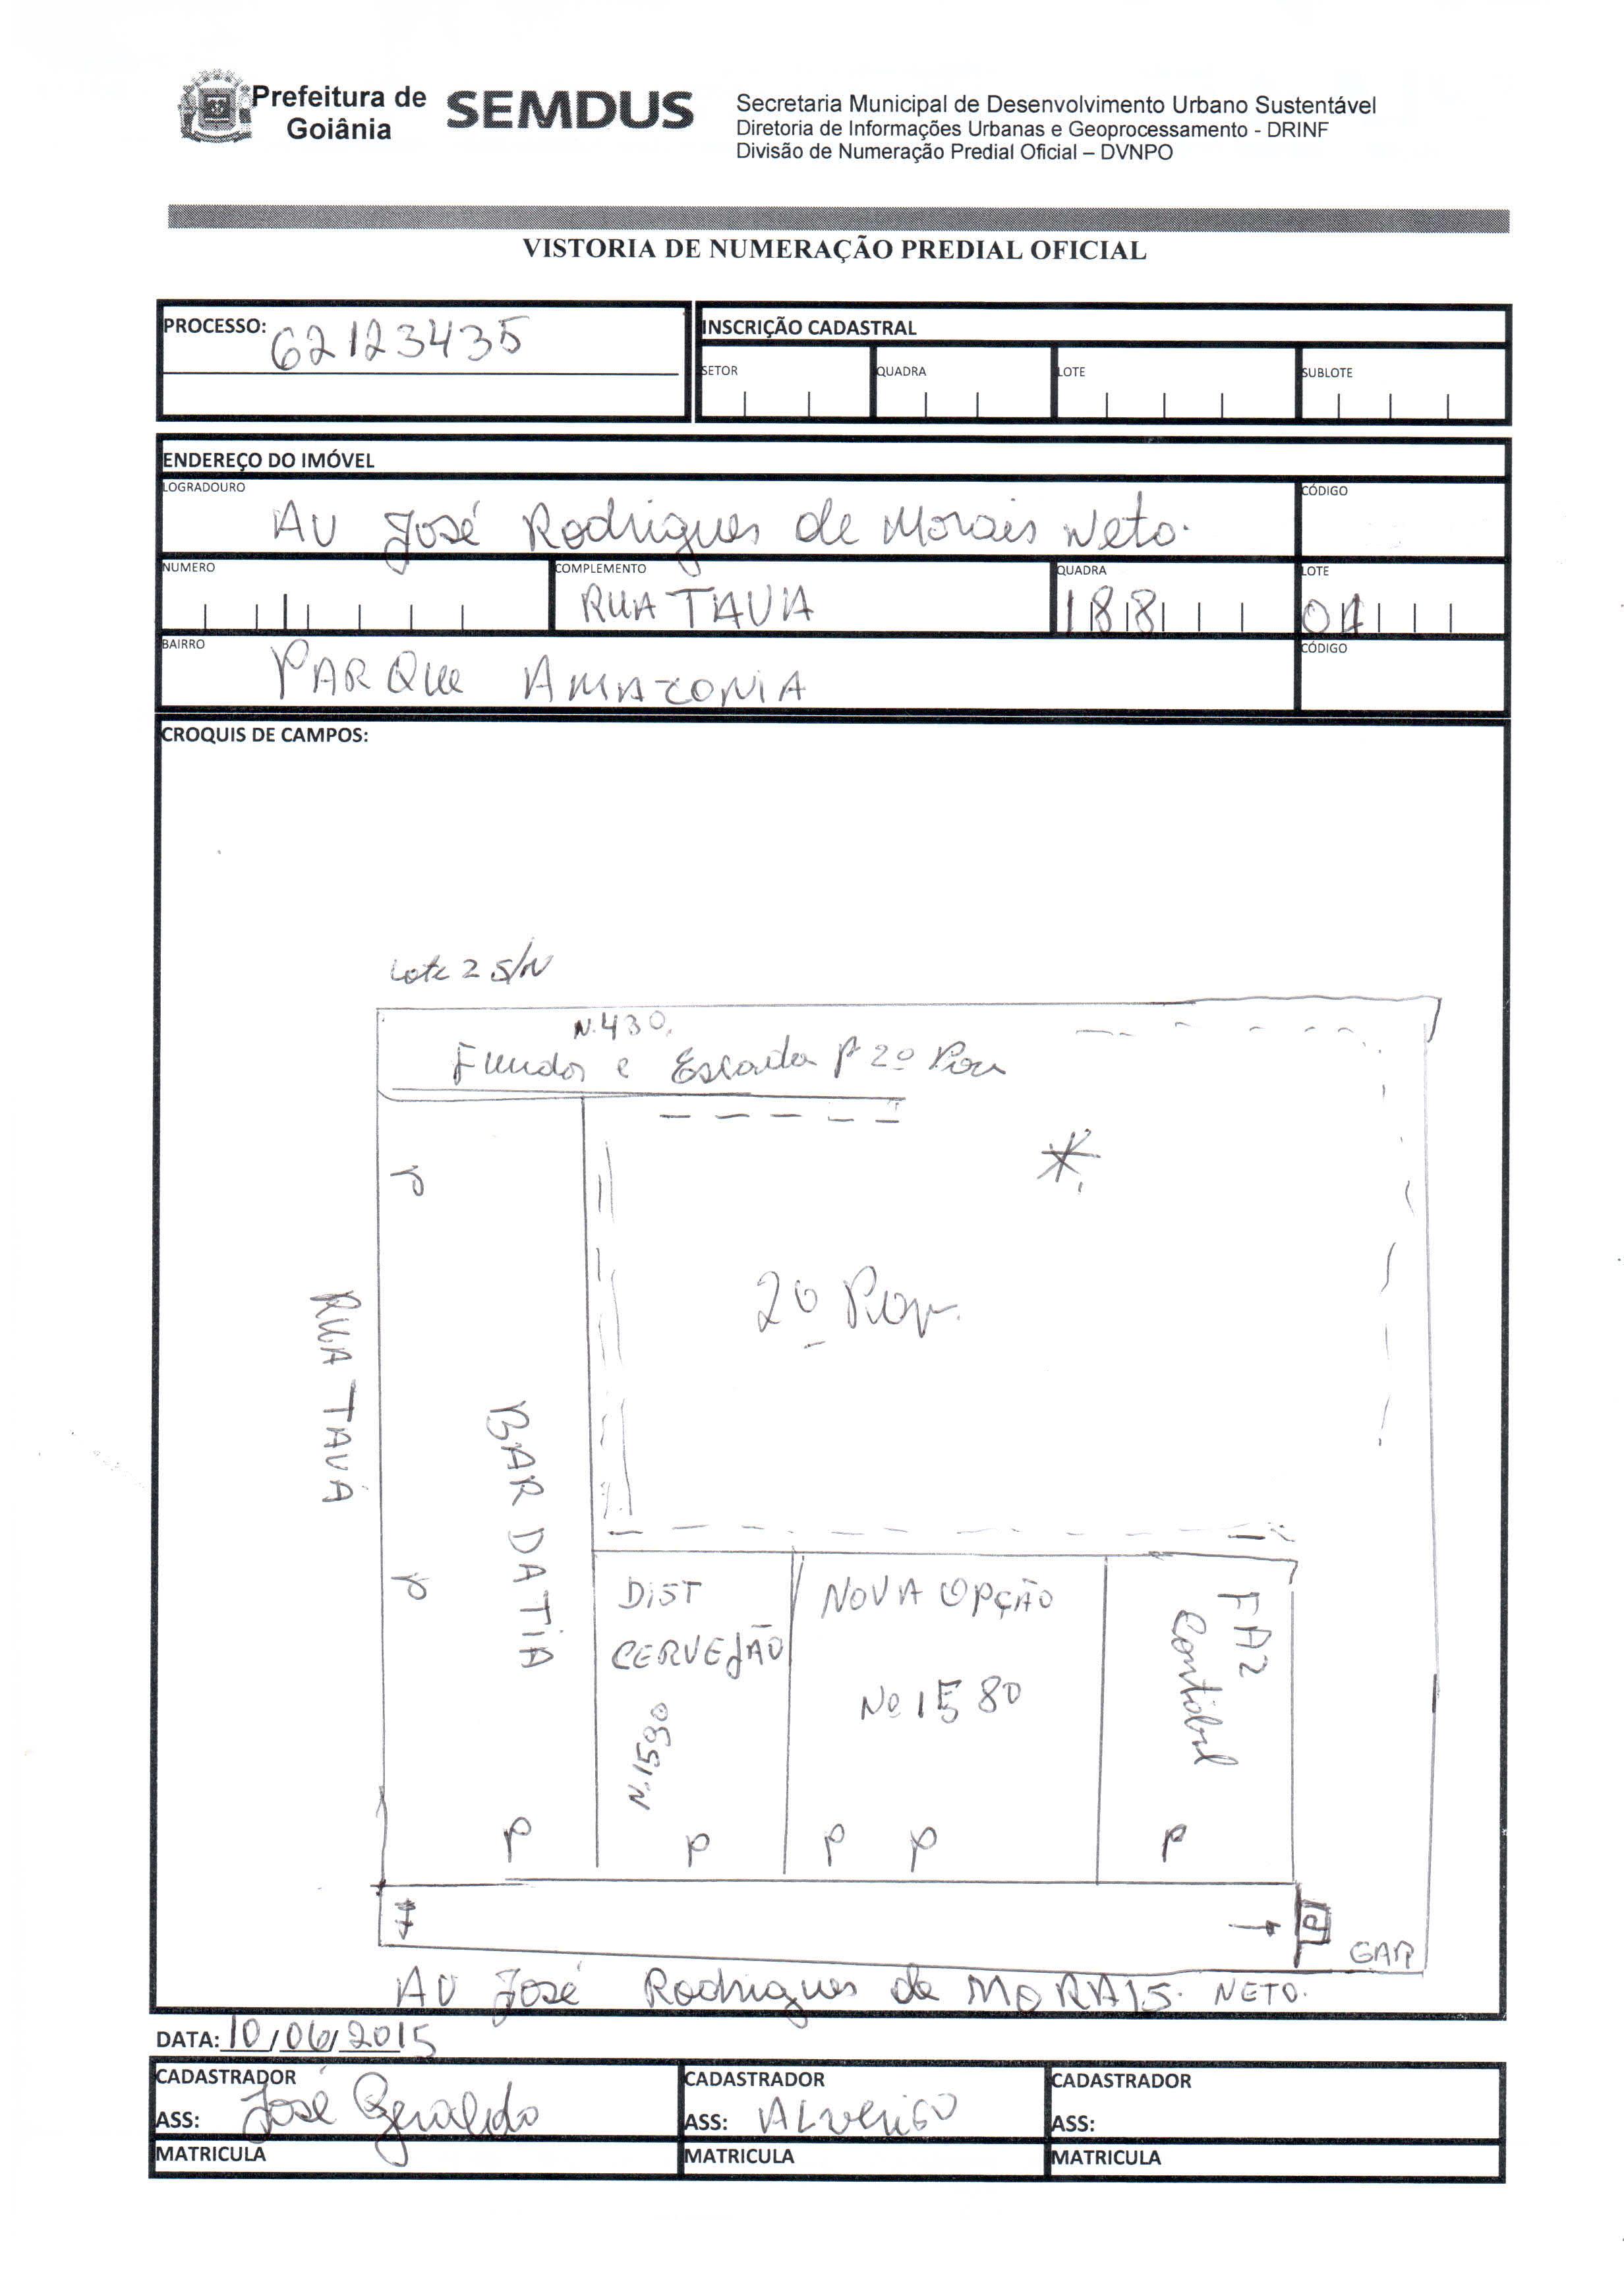 Prefeitura de Goiânia
SEMDUS
Secretaria Municipal de Desenvolvimento Urbano Sustentável
Diretoria de Informações Urbanas e Geoprocessamento - DRINF
Divisão de Numeração Predial Oficial – DVNPO
VISTORIA DE NUMERAÇÃO PREDIAL OFICIAL
PROCESSO: 62123435
INSCRIÇÃO CADASTRAL
SETOR QUADRA LOTE SUBLOTE
ENDEREÇO DO IMÓVEL
LOGRADOURO CÓDIGO
AV José Rodrigues de Morais Neto.
NUMERO COMPLEMENTO QUADRA LOTE
RUA TAVA 188 04
BAIRRO CÓDIGO
PARQUE AMAZONIA
CROQUIS DE CAMPOS:
Lote 2 S/N
N.430.
Fundos e Escada P 2º Pav
P
2º Pav.
RUA TAVÁ
BAR DA TIA
P
DIST
CERVEJÃO
N.1590
NOVA OPÇÃO
Nº 1580
FA2
Contábil
P P P P P
P
GAR
AV José Rodrigues de MORAIS. NETO.
DATA: 10/06/2015
CADASTRADOR CADASTRADOR CADASTRADOR
ASS: José Geraldo ASS: ASS:
MATRICULA MATRICULA MATRICULA